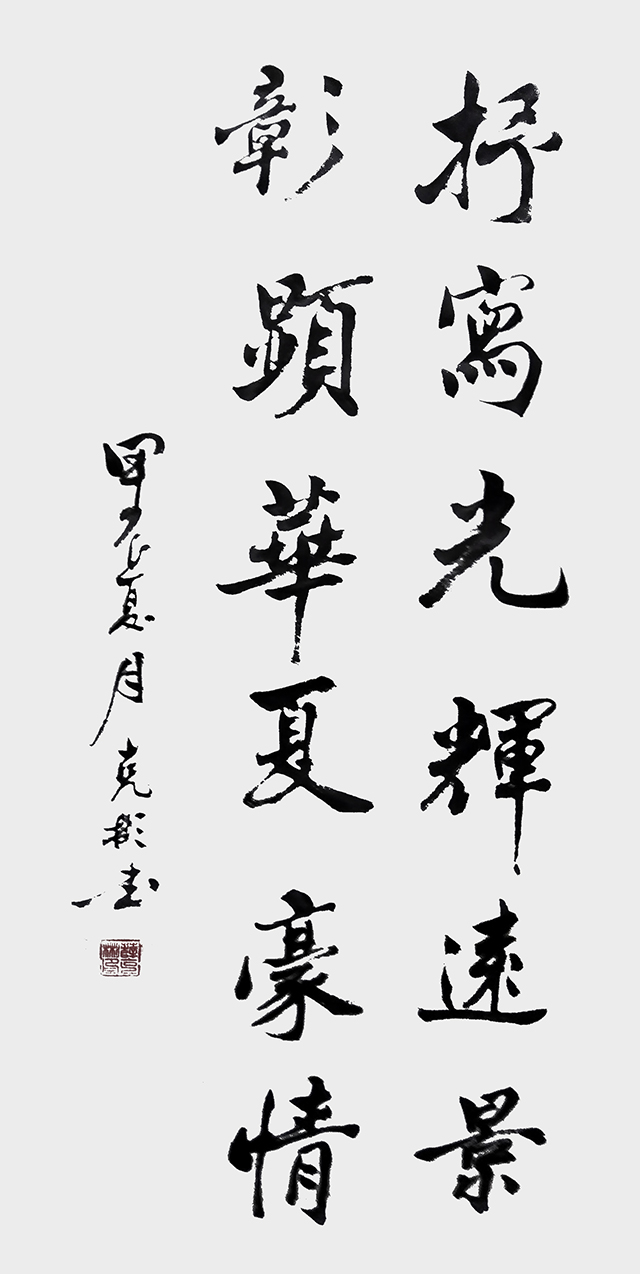 抒寫光輝遠景
彰顯華夏豪情
夏月克彬書